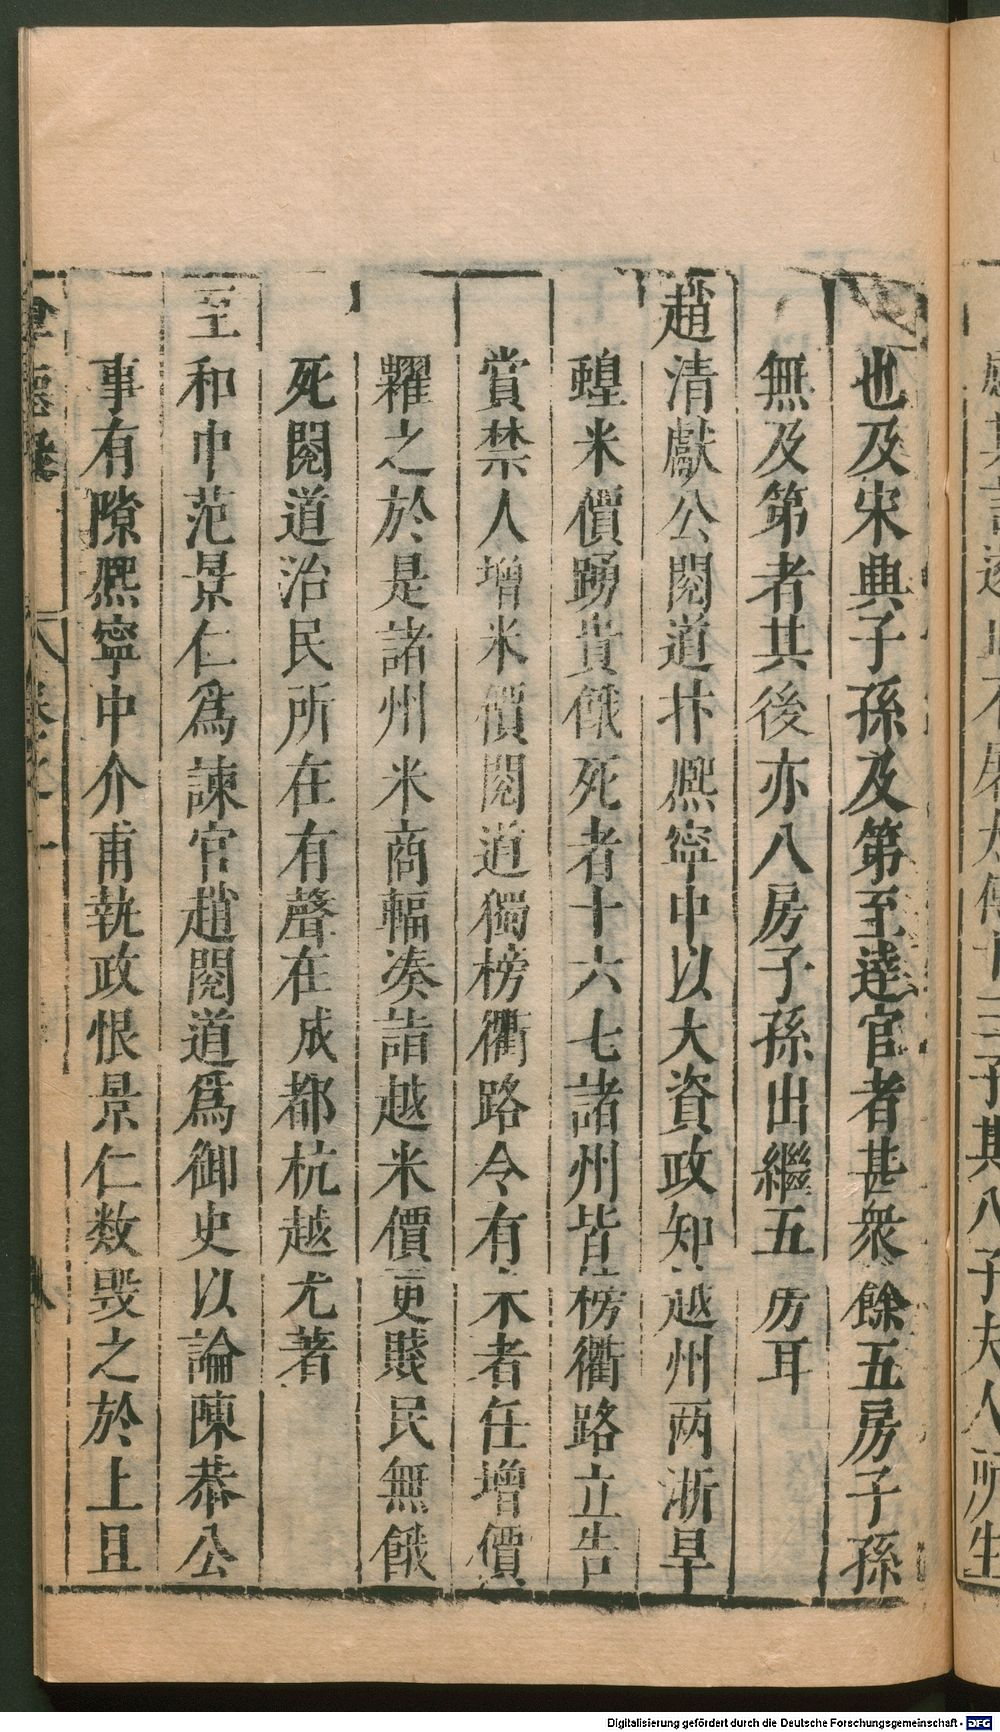 也及宋興子孫及第至達官者甚衆餘五房子孫
無及第者其後亦八房子孫出繼五房耳
趙清獻公閱道抃熙寧中以大資政知越州两浙旱
蝗米價踴貴餓死者十六七諸州皆榜衢路立告
賞禁人增米價閱道獨榜衢路令有米者任增價
糶之於是諸州米商輻凑詣越米價更賤民無餓
死閱道治民所在有聲在成都杭越尤著
至和中范景仁爲諫官趙閱道爲御史以論陳恭公
事有隙熙寧中介甫執政恨景仁数毁之於上且
Digitalisierung gefördert durch die Deutsche Forschungsgemeinschaft - DFG